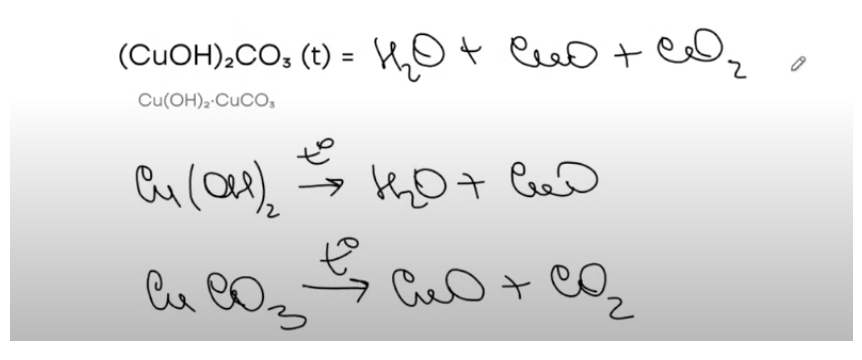 (CuOH)₂CO₃ (t) = H₂O + CuO + CO₂
Cu(OH)₂·CuCO₃
Cu(OH)₂ →(t°) H₂O + CuO
CuCO₃ →(t°) CuO + CO₂